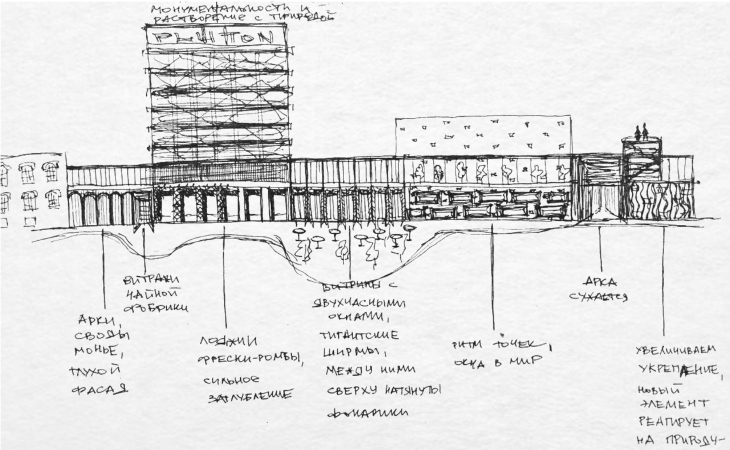 МОНУМЕНТАЛЬНОСТЬ И
РАСТВОРЕНИЕ С ПРИРОДОЙ
PLUTTON
ВИТРАЖИ
ЧАЙНОЙ
ФАБРИКИ
АРКИ,
СВОДЫ
МОНЬЕ,
ГЛУХОЙ
ФАСАД
ЛОДЖИИ
ФРЕСКИ-РОМБЫ,
СИЛЬНОЕ
ЗАГЛУБЛЕНИЕ
ВИТРИНЫ С
ДВУХЧАСНЫМИ
ОКНАМИ,
ГИГАНТСКИЕ
ШИРМЫ,
МЕЖДУ НИМИ
СВЕРХУ НАТЯНУТЫ
ФОНАРИКИ
РИТМ ТОЧЕК,
ОКНА В МИР
АРКА
СУЖАЕТСЯ
УВЕЛИЧИВАЕМ
УКРЕПЛЕНИЕ,
НОВЫЙ
ЭЛЕМЕНТ
РЕАГИРУЕТ
НА ПРИРОДУ-